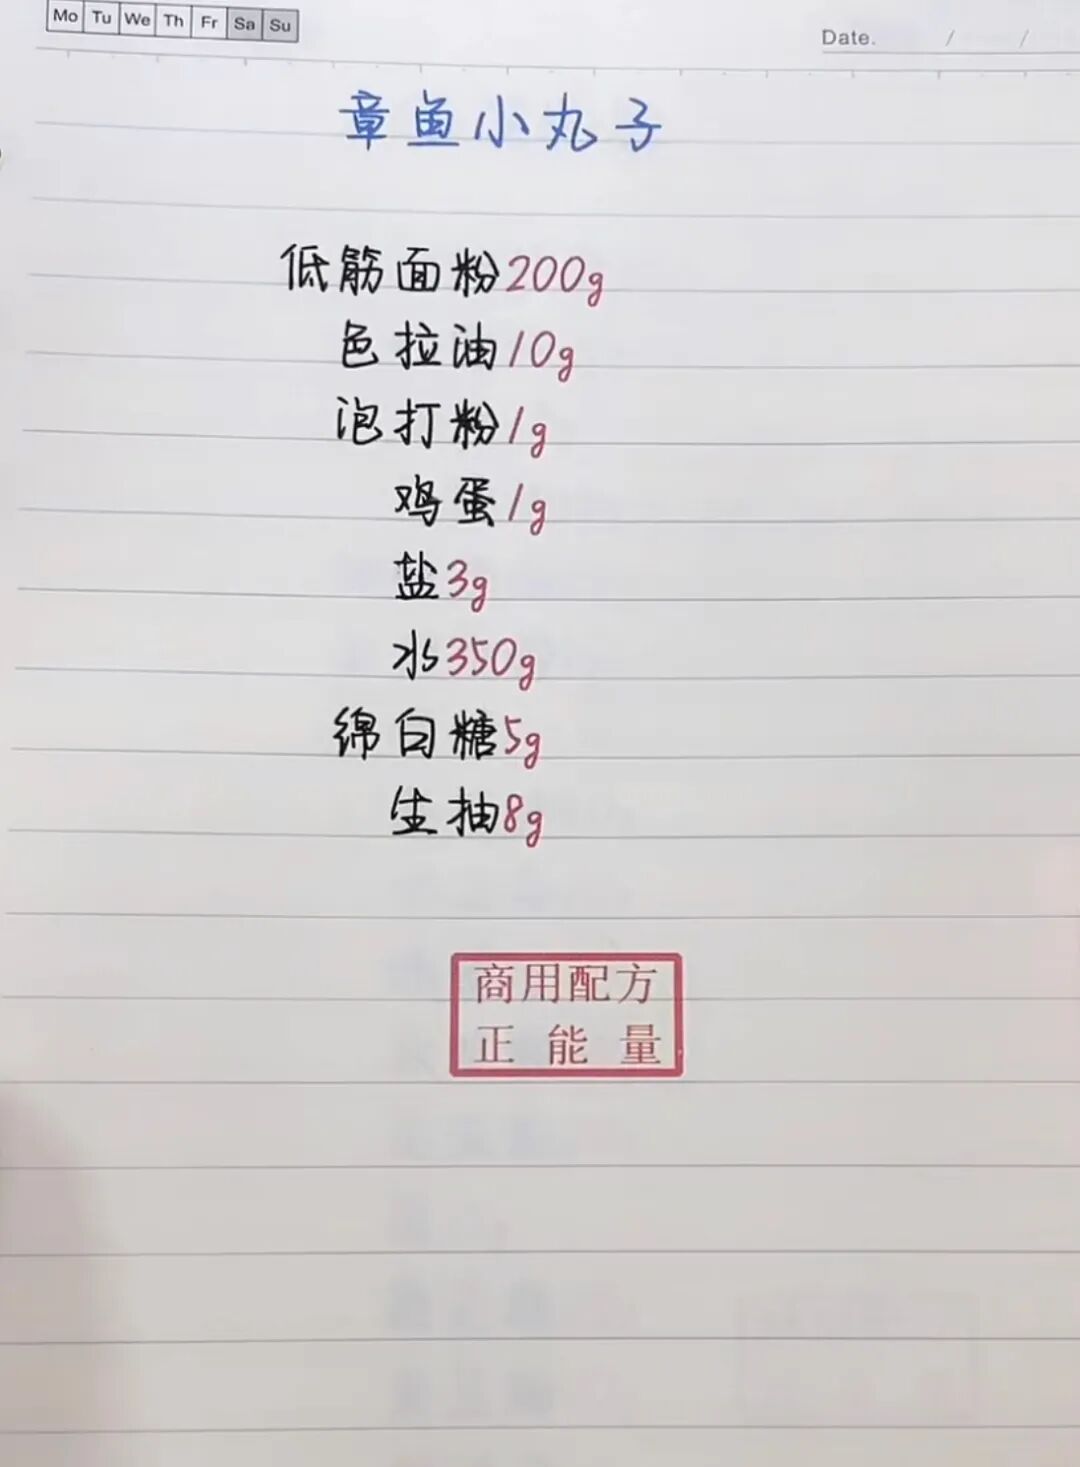 Mo Tu We Th Fr Sa Su
Date. / /
章鱼小丸子
低筋面粉200g
色拉油10g
泡打粉1g
鸡蛋1g
盐3g
水350g
绵白糖5g
生抽8g
商用配方
正能量